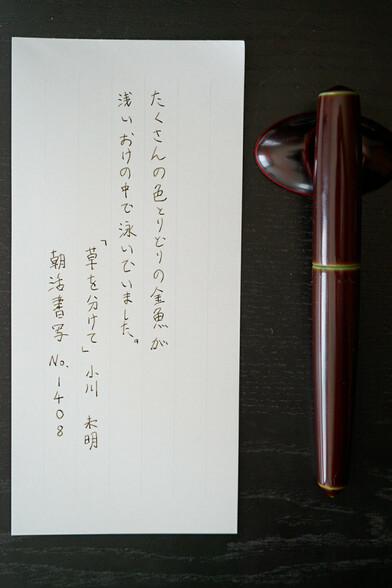 たくさんの色とりどりの金魚が
浅いおけの中で泳いでいました。
「草を分けて」小川 未明
朝活書写 No.1408